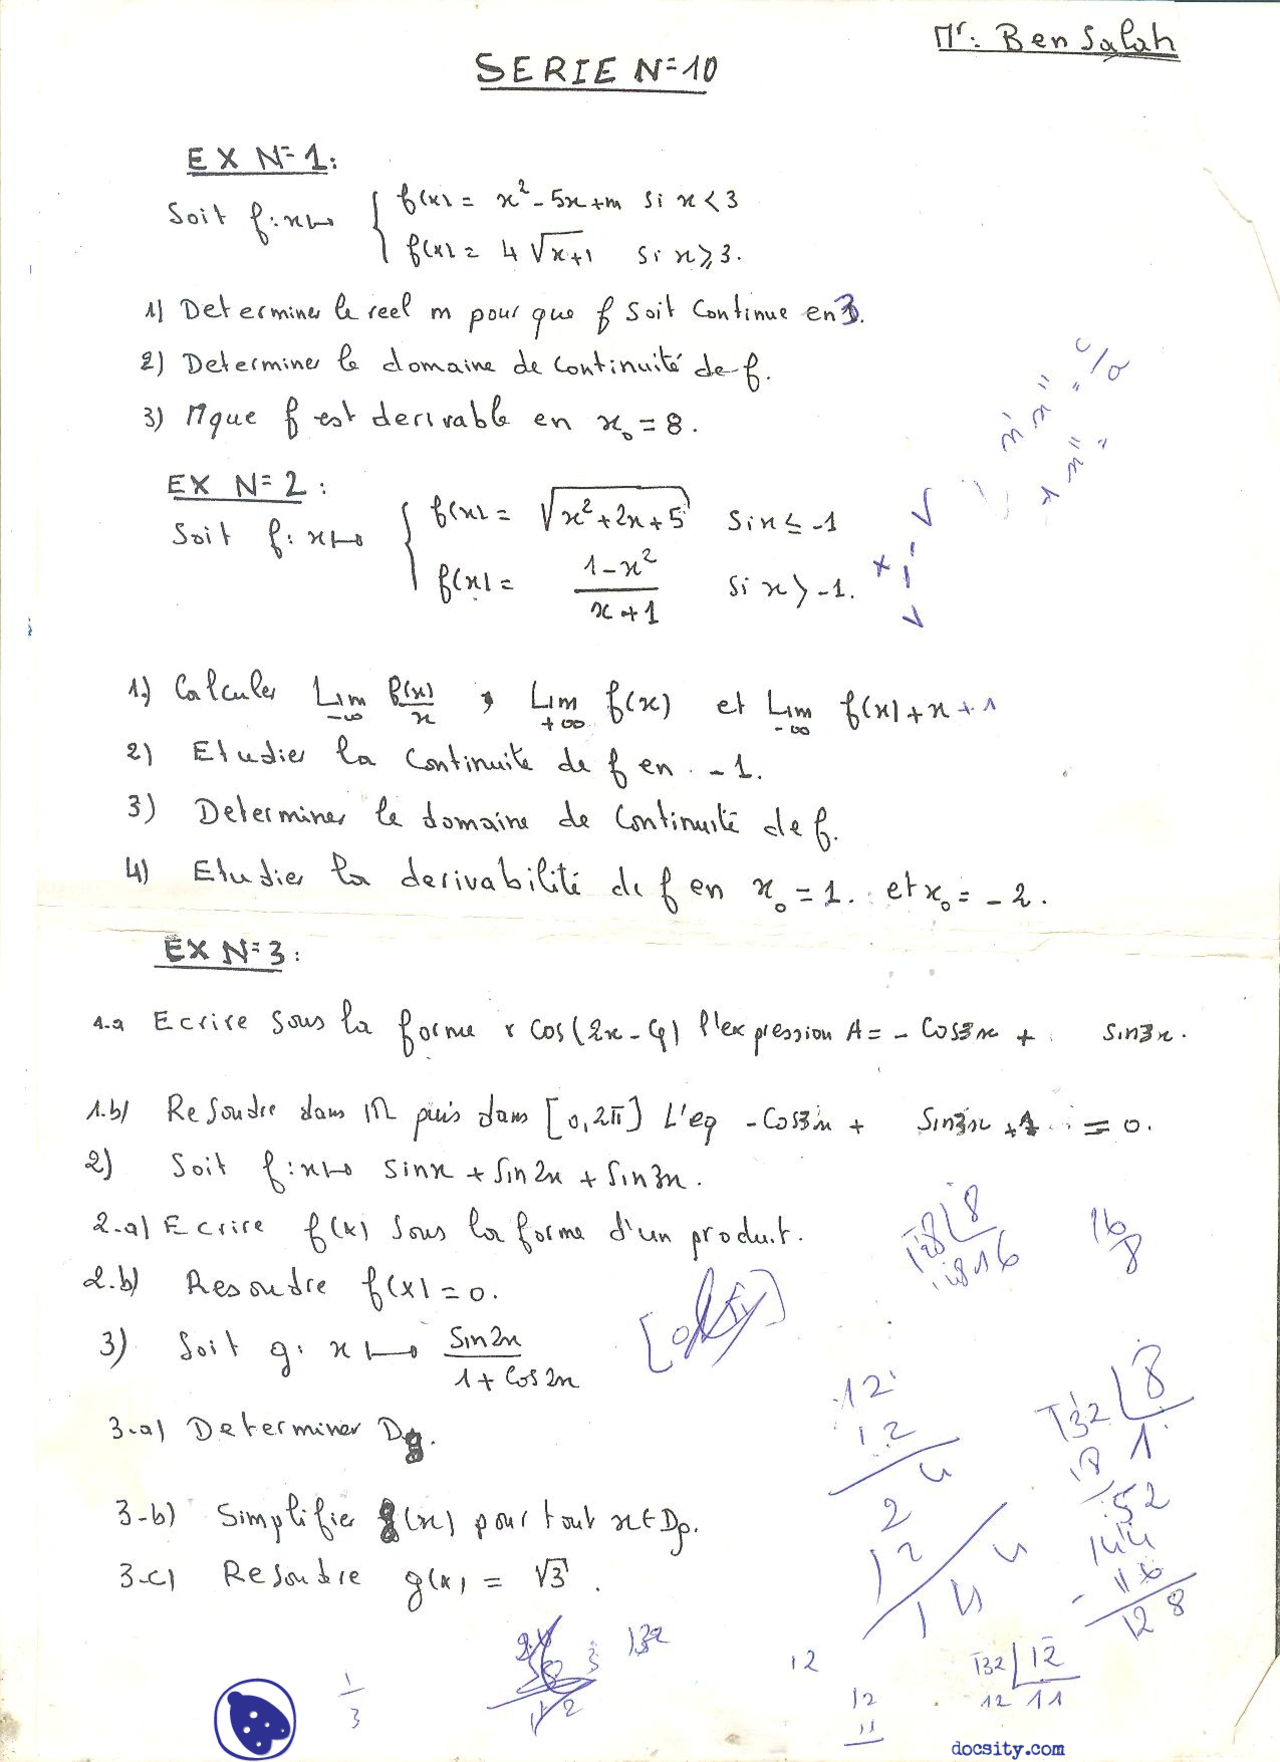 Mr: Ben Salah
SERIE N=10
EX N=1:
Soit f: x↦ { f(x) = x² - 5x + m si x < 3
f(x) = 4√x+1 si x ⩾ 3.
1) Determiner le reel m pour que f soit continue en 3.
2) Determiner le domaine de continuité de f.
3) Mque f est derivable en x₀ = 8.
x' x" = c/a
+ x" =
EX N=2:
Soit f: x↦ { f(x) = √x²+2x+5 si x ≤ -1
f(x) = 1-x² / x+1 si x > -1.
1) Calculer Lim -∞ f(x)/x , Lim +∞ f(x) et Lim -∞ f(x)+x+1
2) Etudier la continuite de f en -1.
3) Determiner le domaine de continuité de f.
4) Etudier la derivabilité de f en x₀ = 1. et x₀ = -2.
EX N=3:
1.a Ecrire sous la forme r cos(2x-φ) l'expression A = - Cos3x + Sin3x.
1.b) Resoudre dans IR puis dans [0,2π] L'eq -Cos3x + Sin3x +1 = 0.
2) Soit f: x↦ sinx + sin2x + sin3x.
2.a) Ecrire f(x) sous la forme d'un produit.
2.b) Resoudre f(x) = 0.
3) Soit g: x↦ Sin2x / 1+Cos2x
3.a) Determiner Dg.
3-b) Simplifier g(x) pour tout x∈Dg.
3-c) Resoudre g(x) = √3.
16
8
12
12
24
12
144
132 8
1
52
144
- 16
128
1
3
132
12
12
11
132 12
12 11
docsity.com